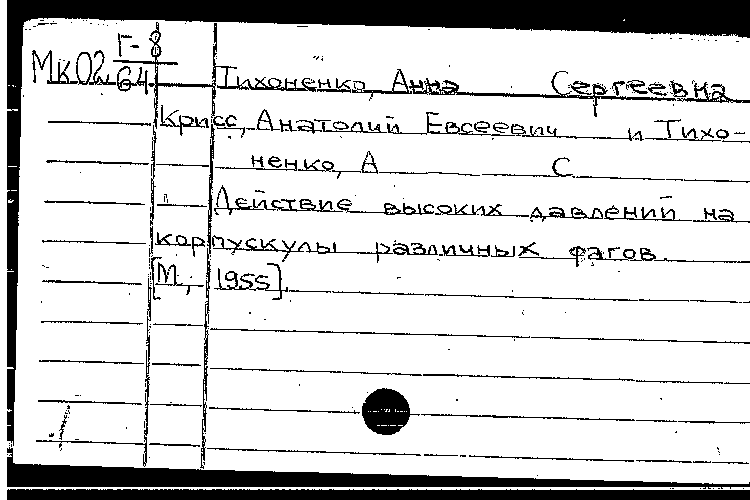 Г-8
МК02 64 Тихоненко, Анна Сергеевна
Крисс, Анатолий Евсеевич и Тихо-
ненко, А С
Действие высоких давлений на
корпускулы различных фагов.
[М, 1955].